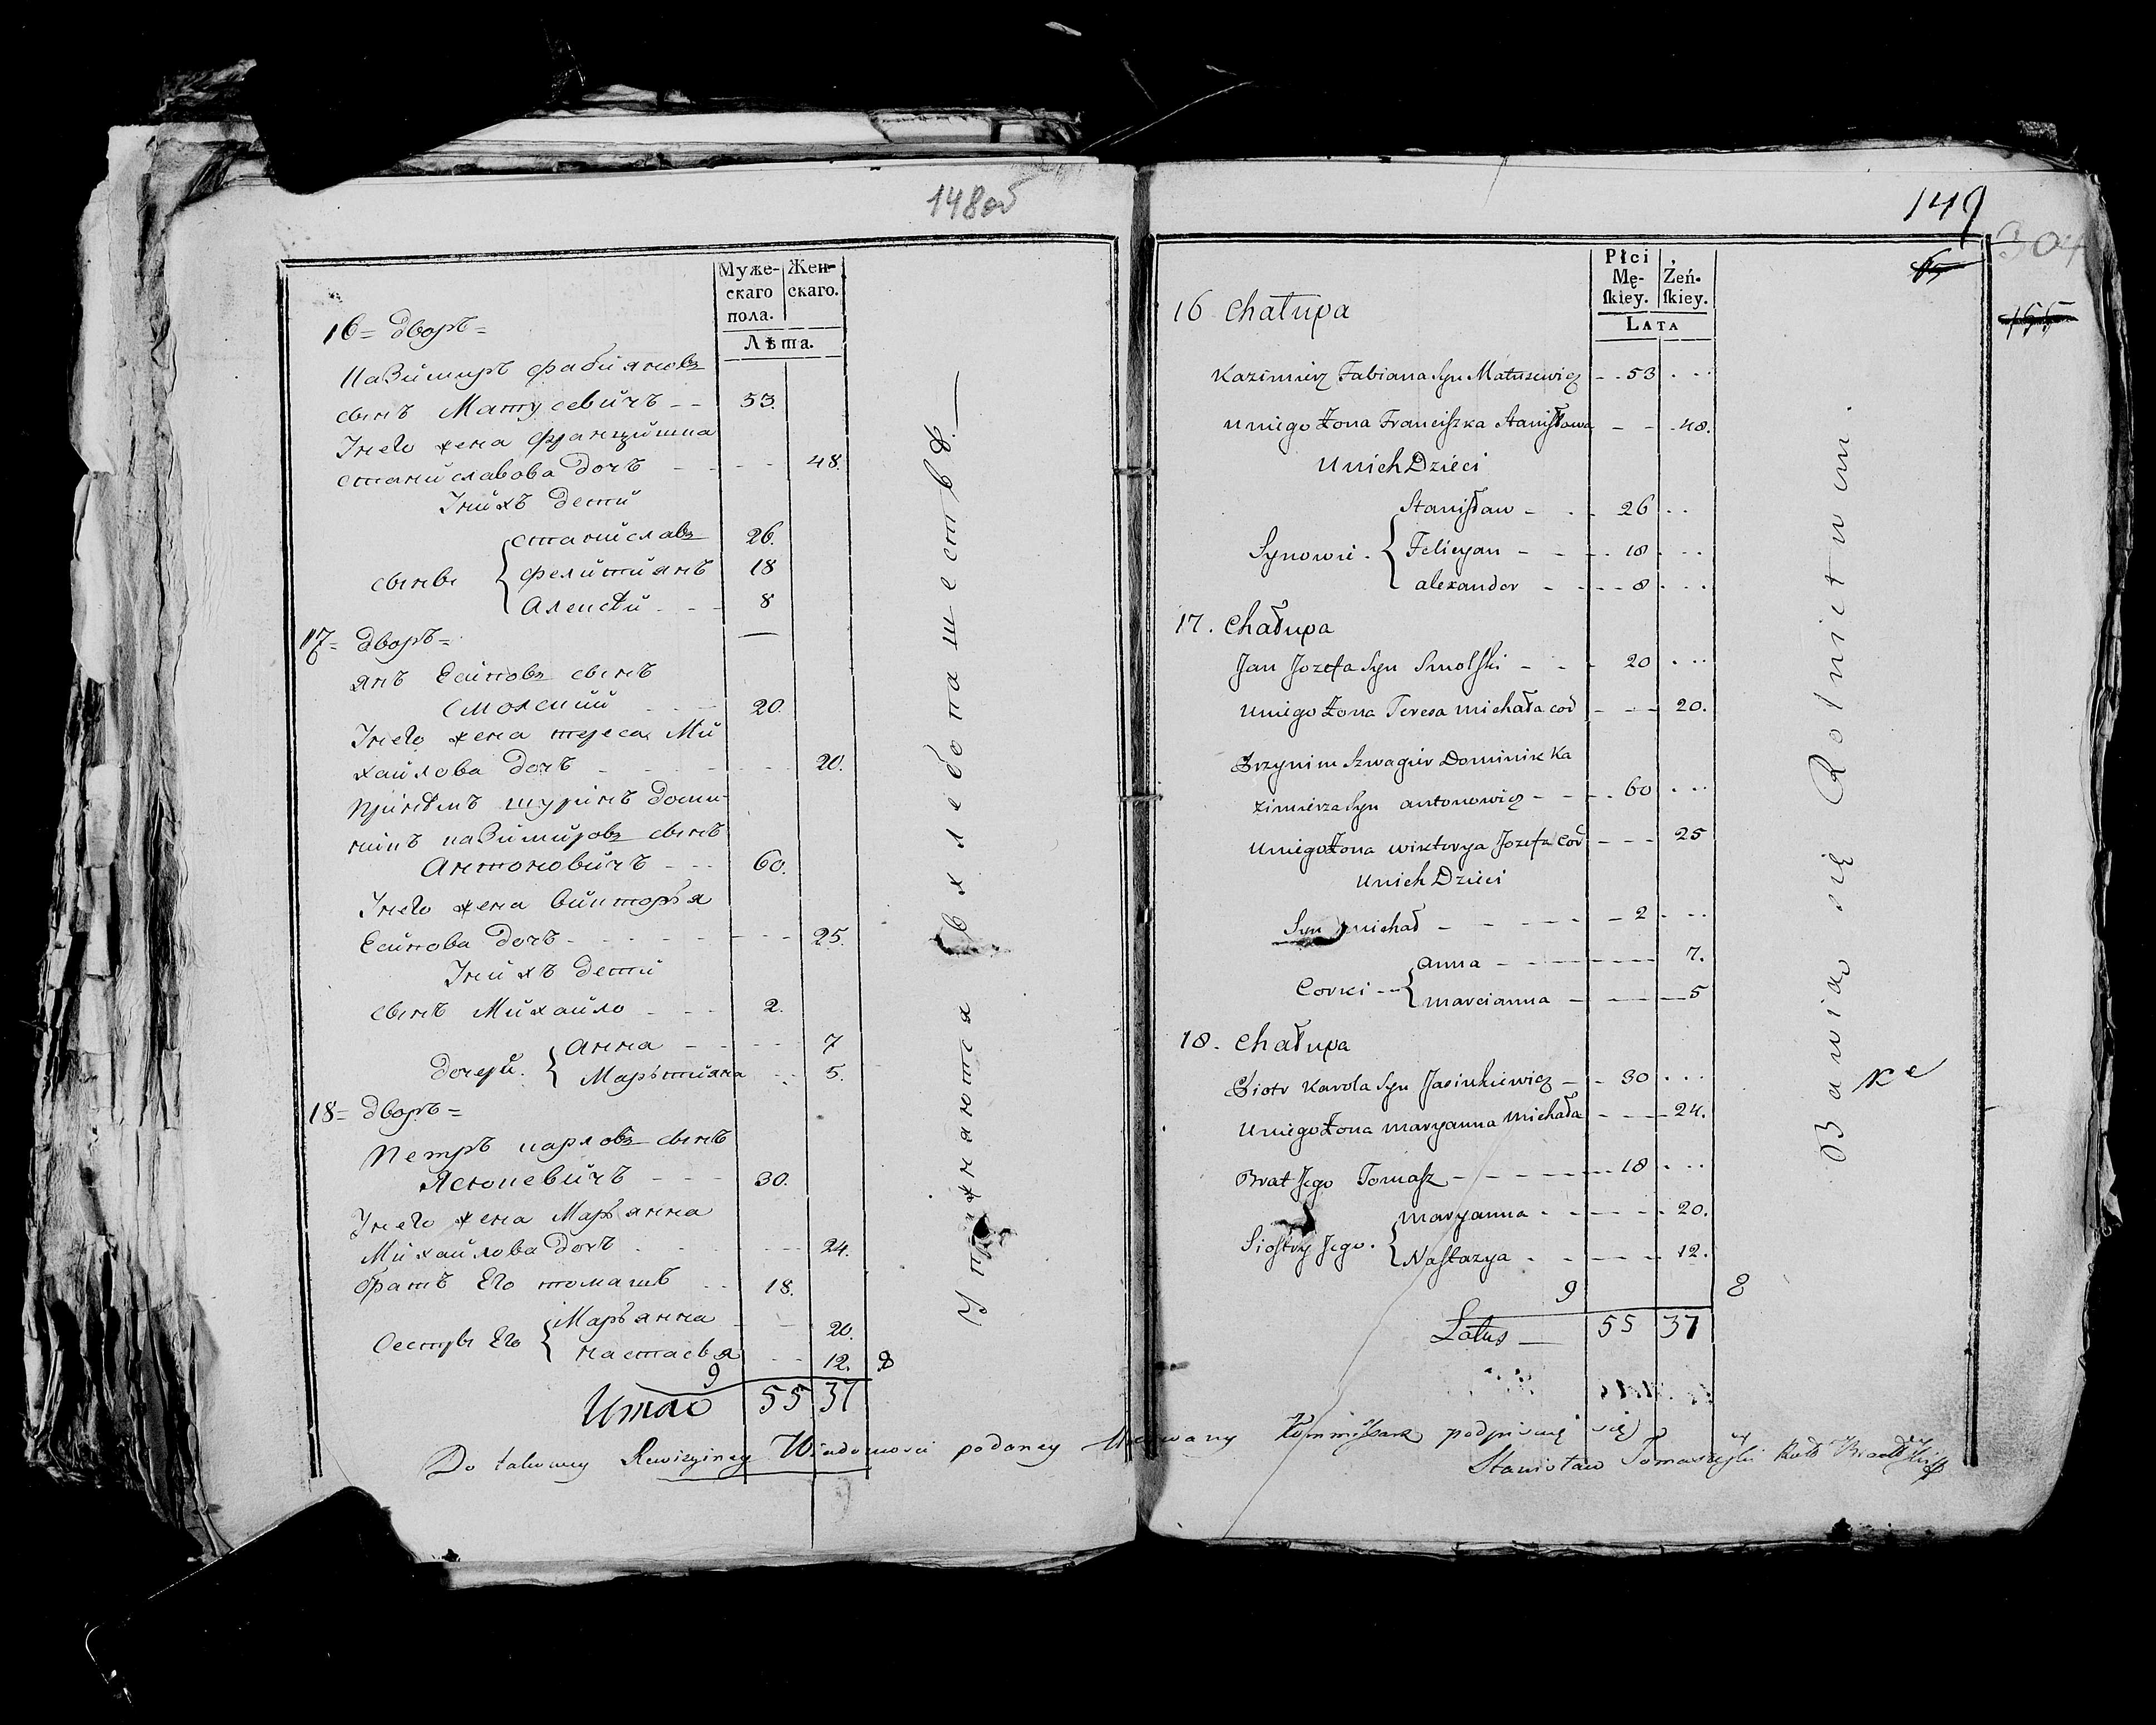 148об
Муже-
скаго
пола.
Жен-
скаго.
Лѣта.
16= дворъ=
Казимиръ Фабiяновъ
сынъ Матусевичъ -- 53.
Унего жена Францишка
станиславова дочь - - - - 48.
Унихъ дети
сыны { станиславъ 26.
Фелитиянъ 18
Алексѣй - - - 8
17= дворъ=
янъ Есиповъ сынъ
смолский - - - 20.
Унего жена тереса Ми
хайлова дочь - - - - 20.
принѣмъ шуринъ доми-
никъ казимировъ сынъ
Антоновичъ - - - 60.
Унего жена викторъя
Есипова дочь - - - - 25.
Унихъ дети
сынъ Михайло - - - 2.
дочери. { Анна - - - - 7
Марътияна - - 5.
18= дворъ=
Петръ карловъ сынъ
Ясюкевичъ - - - 30.
Унего жена Маръянна
Михайлова дочь - - - - 24.
братъ Его томашъ - - 18.
Сестры Его { Маръянна - - 20.
настасья - - 12. 8
9
Итого 55 37
Упражняются вхлебопашествѣ.
149
304
65
Płci
Mę-
skiey.
Żeń-
skiey.
LATA
16 Chałupa
Kazimierz Fabiana Syn Matusewicz - - 53 . . .
uniego Żona Franciszka Stanisława - - . 48.
Unich Dzieci
Synowie . { Stanisław - . - 26 . .
Felicyan - - - . 18 . . .
alexander - - - - 8 . . .
17. Chałupa
Jan Jozefa Syn Smolski - - - 20 . . .
uniego Żona Teresa michała cod - - - 20.
Przynim Szwagier Dominik Ka
zimierza Syn antonowicz - - - . 60 . . .
uniego Żona wiktorya Jozefa Cod - - - 25
Unich Dzieci
Syn michał - - - - - 2 . . .
Corki -- { anna - - - - - - 7.
marcianna - - - - 5
18. Chałupa
Piotr Karola Syn Jasiukiewicz - - 30 . . .
Uniego Żona maryanna michała - - - 24.
Brat Jego Tomasz - - - - - 18 . . .
Siostry Jego . { maryanna . - - - . 20.
Nastazya . - - - - 12.
9 8
Latus — 55 37
Bawią się Rolnictwem.
Do takowey Rewizyiney Wiadomosci podaney Kommissarz podpisuię się
Stanisław Tomaszyski